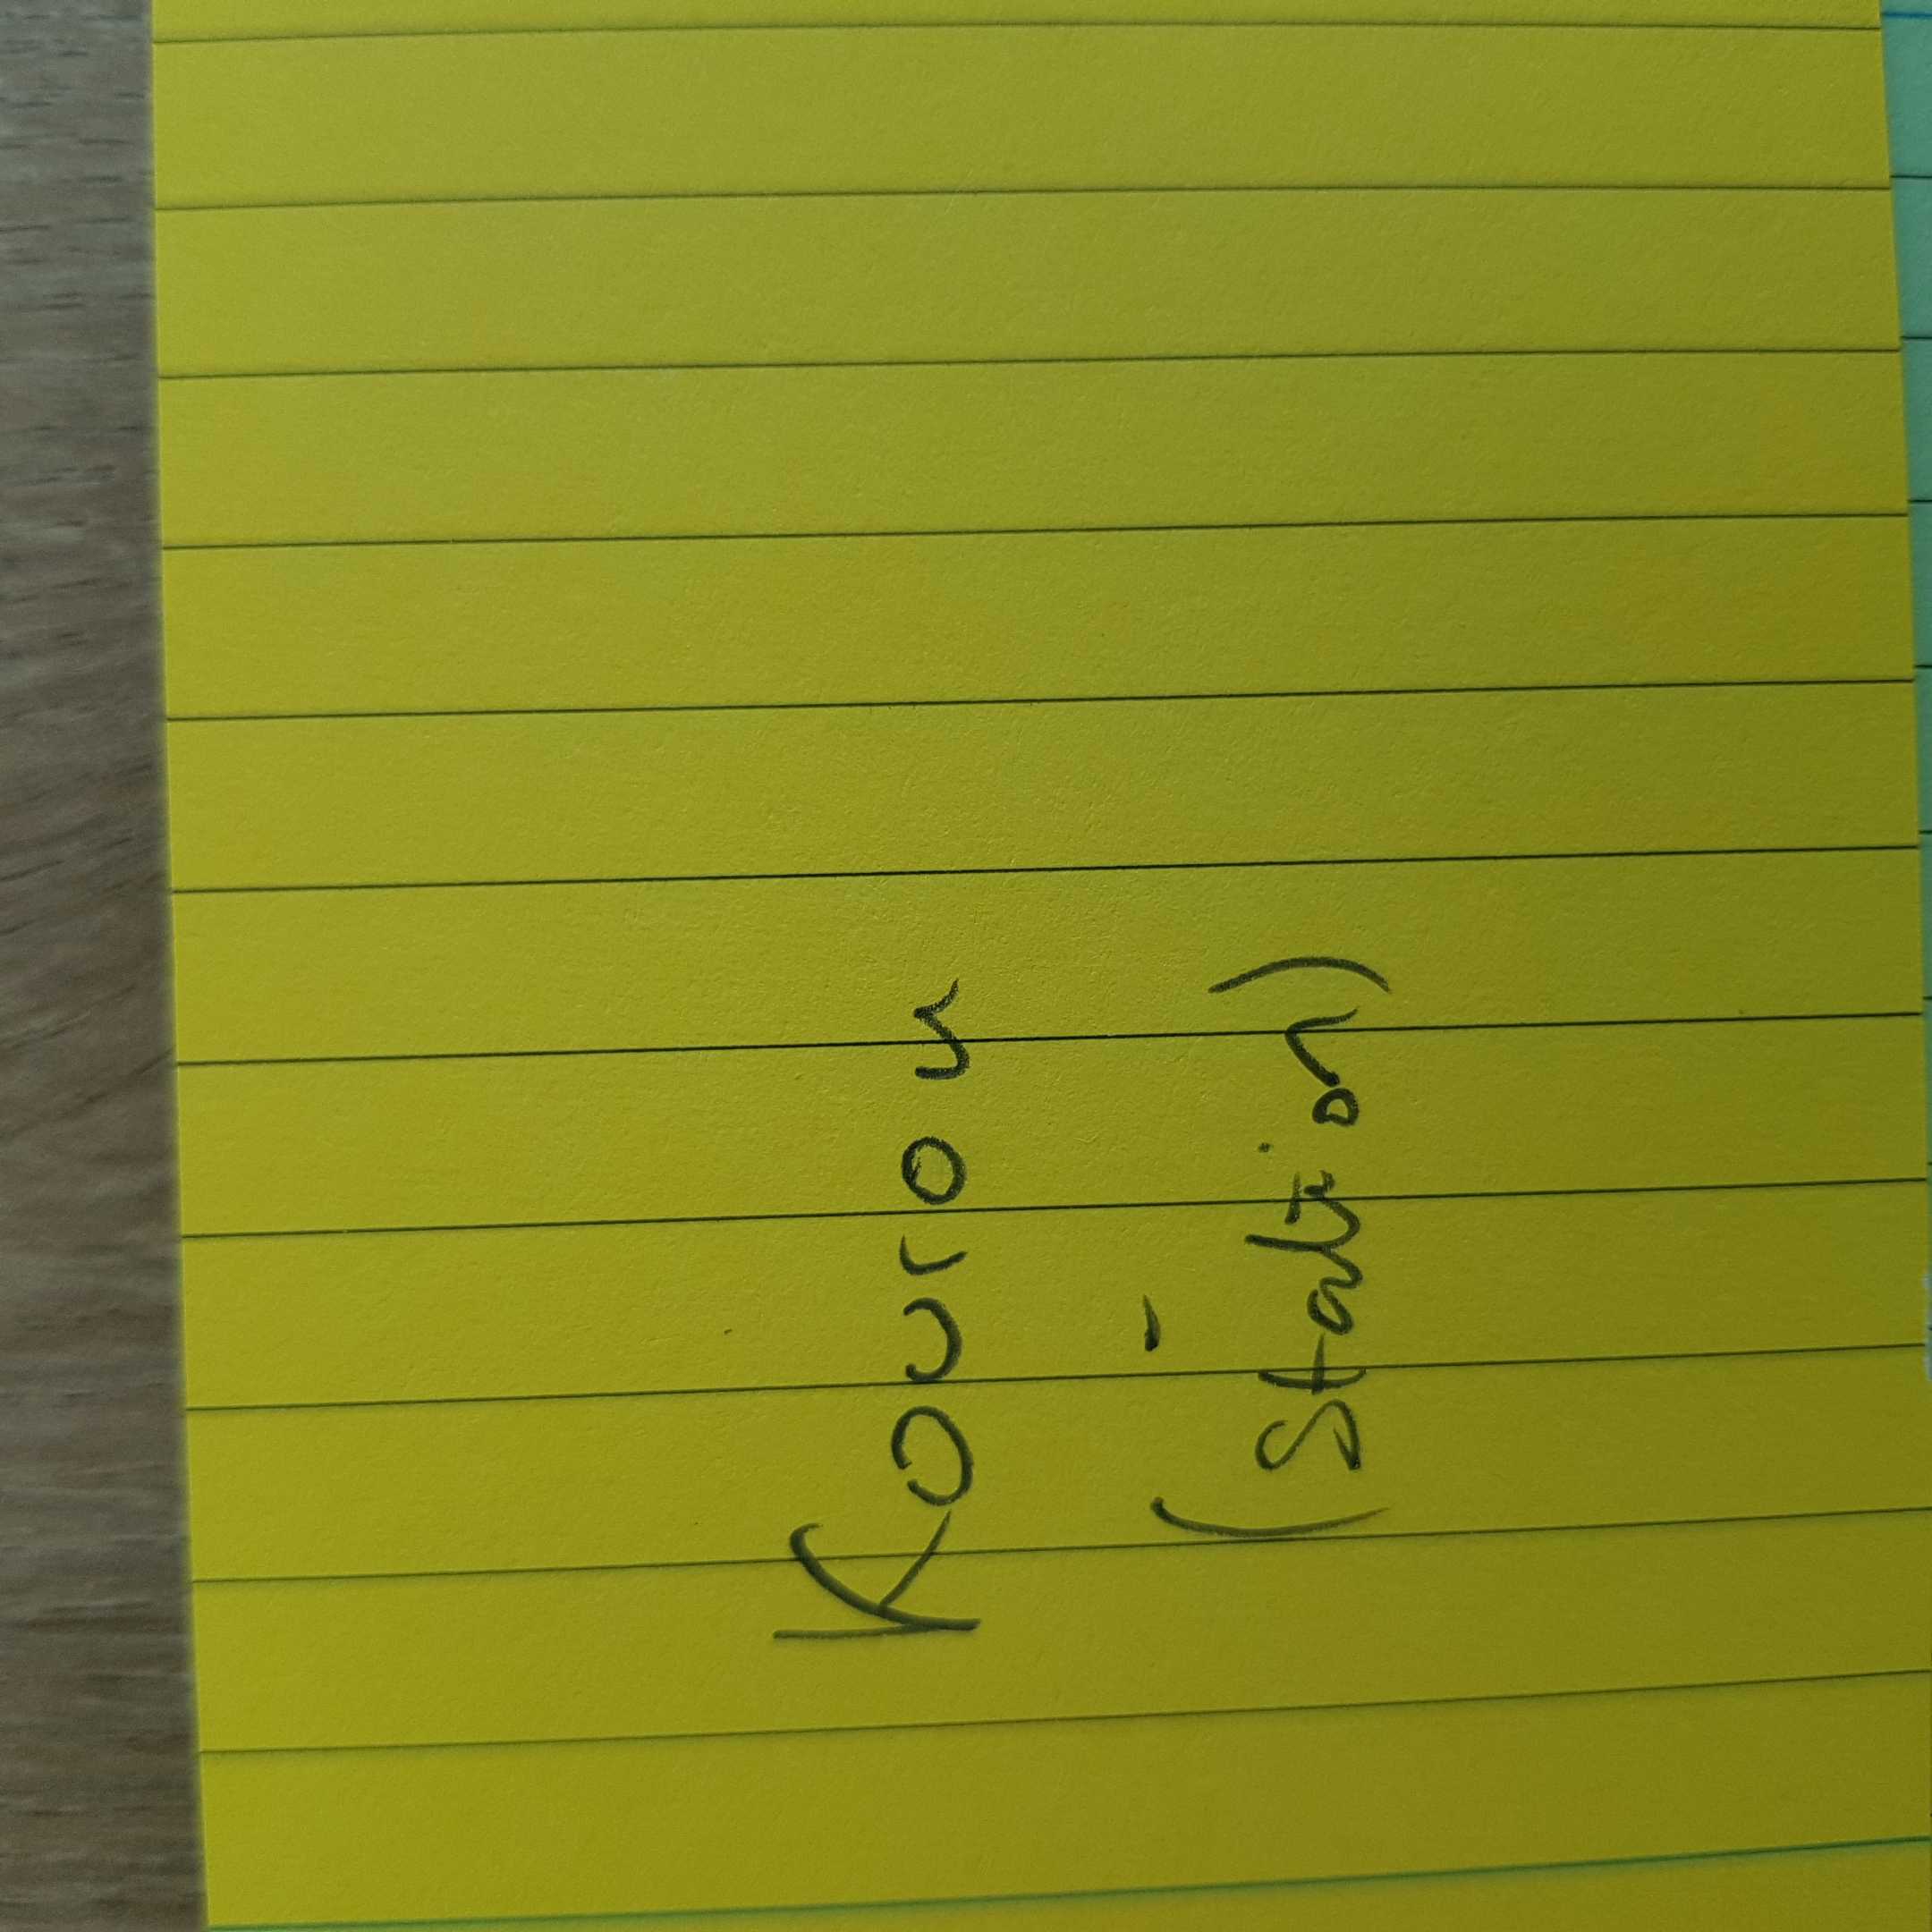 Kourou
-
(Station)